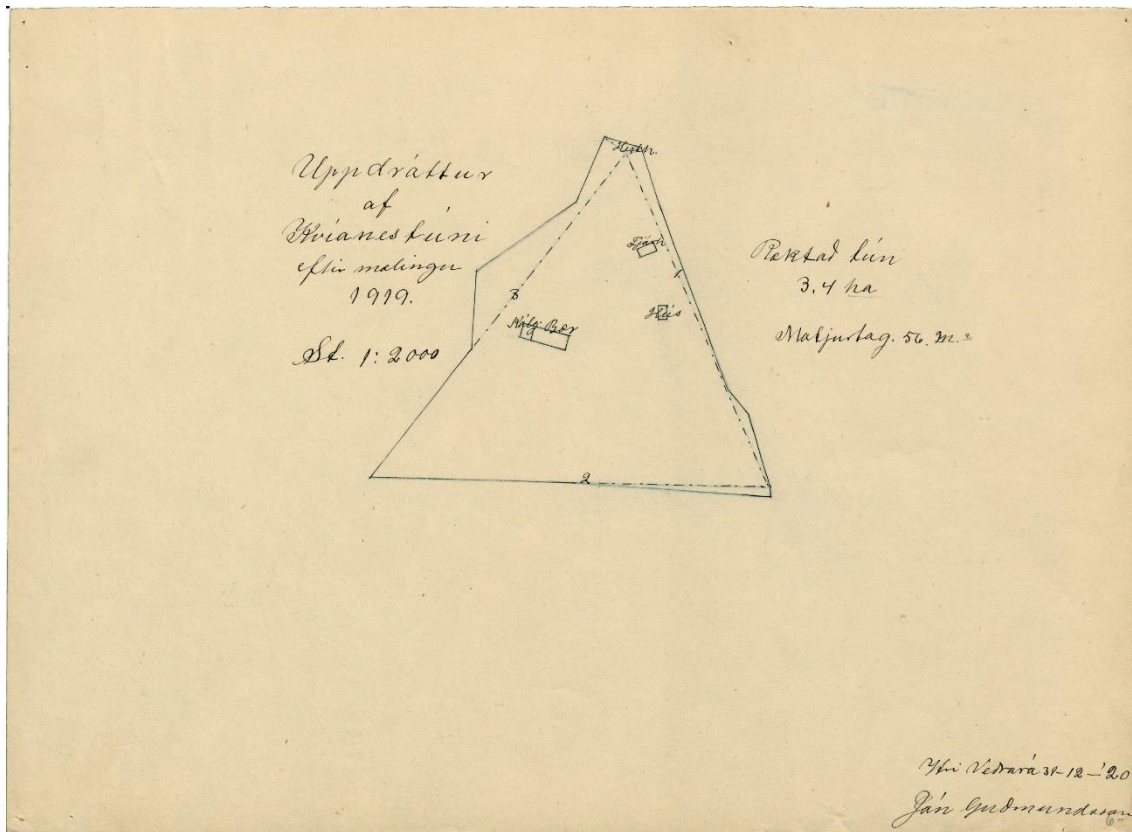 Uppdráttur
af
Kvíanestúni
eftir mælingu
1919.
St. 1:2000
Hesth.
Fjárh
1
Hús
3
Kálg. Bær
2
Ræktað tún
3.4 ha
Matjurtag. 56. m.²
Ytri Veðrará 31-12-'20
Ján Guðmundsson